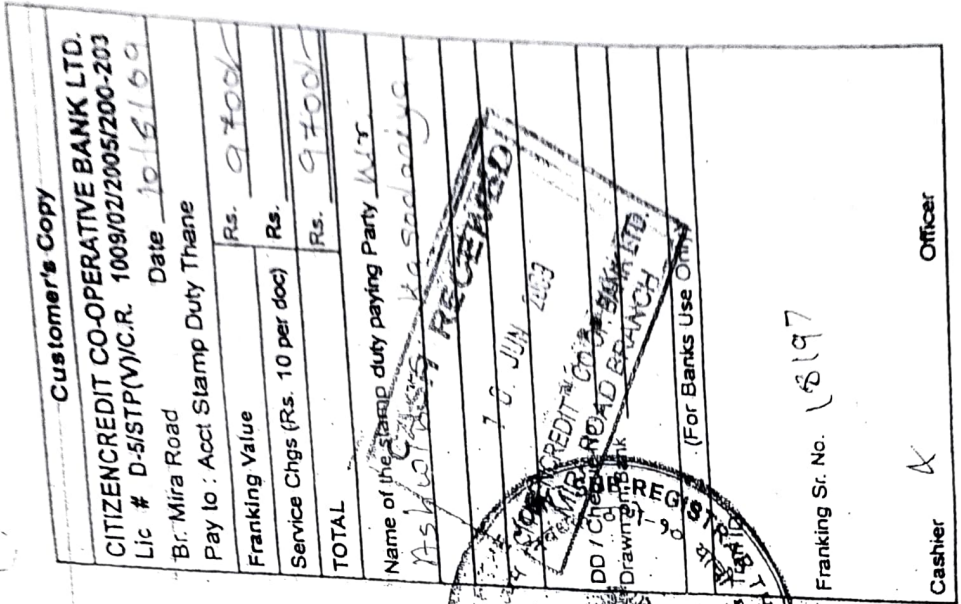 Customer's Copy
CITIZENCREDIT CO-OPERATIVE BANK LTD.
Lic # D-5/STP(V)/C.R. 1009/02/2005/200-203
Br. Mira Road Date 10/6/09
Pay to : Acct Stamp Duty Thane
Franking Value Rs. 9700/-
Service Chgs (Rs. 10 per doc) Rs.
TOTAL Rs. 9700/-
Name of the stamp duty paying Party Mr.
CASH RECEIVED
10 JUN 2009
CREDIT CO. OP. BANK LTD.
MIRA ROAD BRANCH
DD / Cheque
Drawn on Bank
(For Banks Use Only)
SUB-REGISTRAR
Franking Sr. No. 18197
Cashier Officer